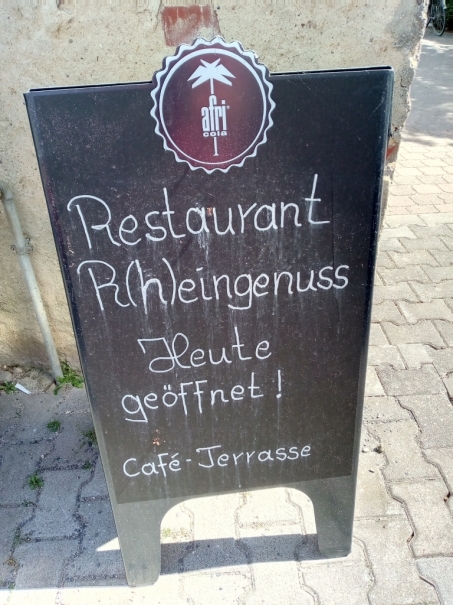 afri
cola
Restaurant
R(h)eingenuss
Heute
geöffnet!
Café-Terrasse